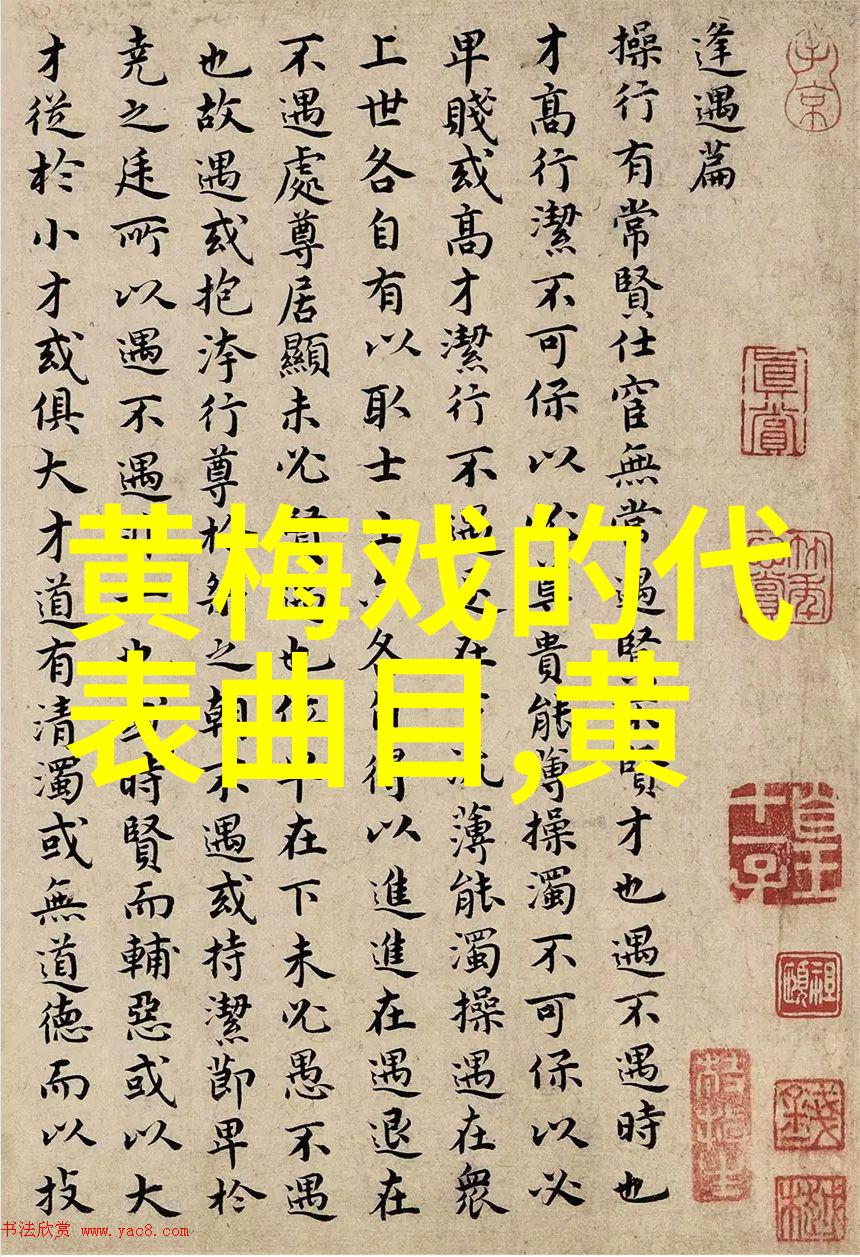 逢遇篇
操行有常賢仕宦無常遇賢不賢才也遇不遇時也
才高行潔不可保以必尊貴能薄操濁不可保以必
卑賤或高才潔行不遇在流薄能濁操遇在衆
上世各自有以取士士各自得以進進在遇退在
不遇處尊居顯未必賢也位卑在下未必愚不遇
也故遇或抱洿行尊於桀之朝不遇或持潔節卑於
堯之廷所以遇不遇非一也或時賢而輔惡或以大
才從於小才或俱大才道有清濁或無道德而以技
黄梅戏的代
表曲目,黄
眞賞
书法欣赏 www.yac8.com